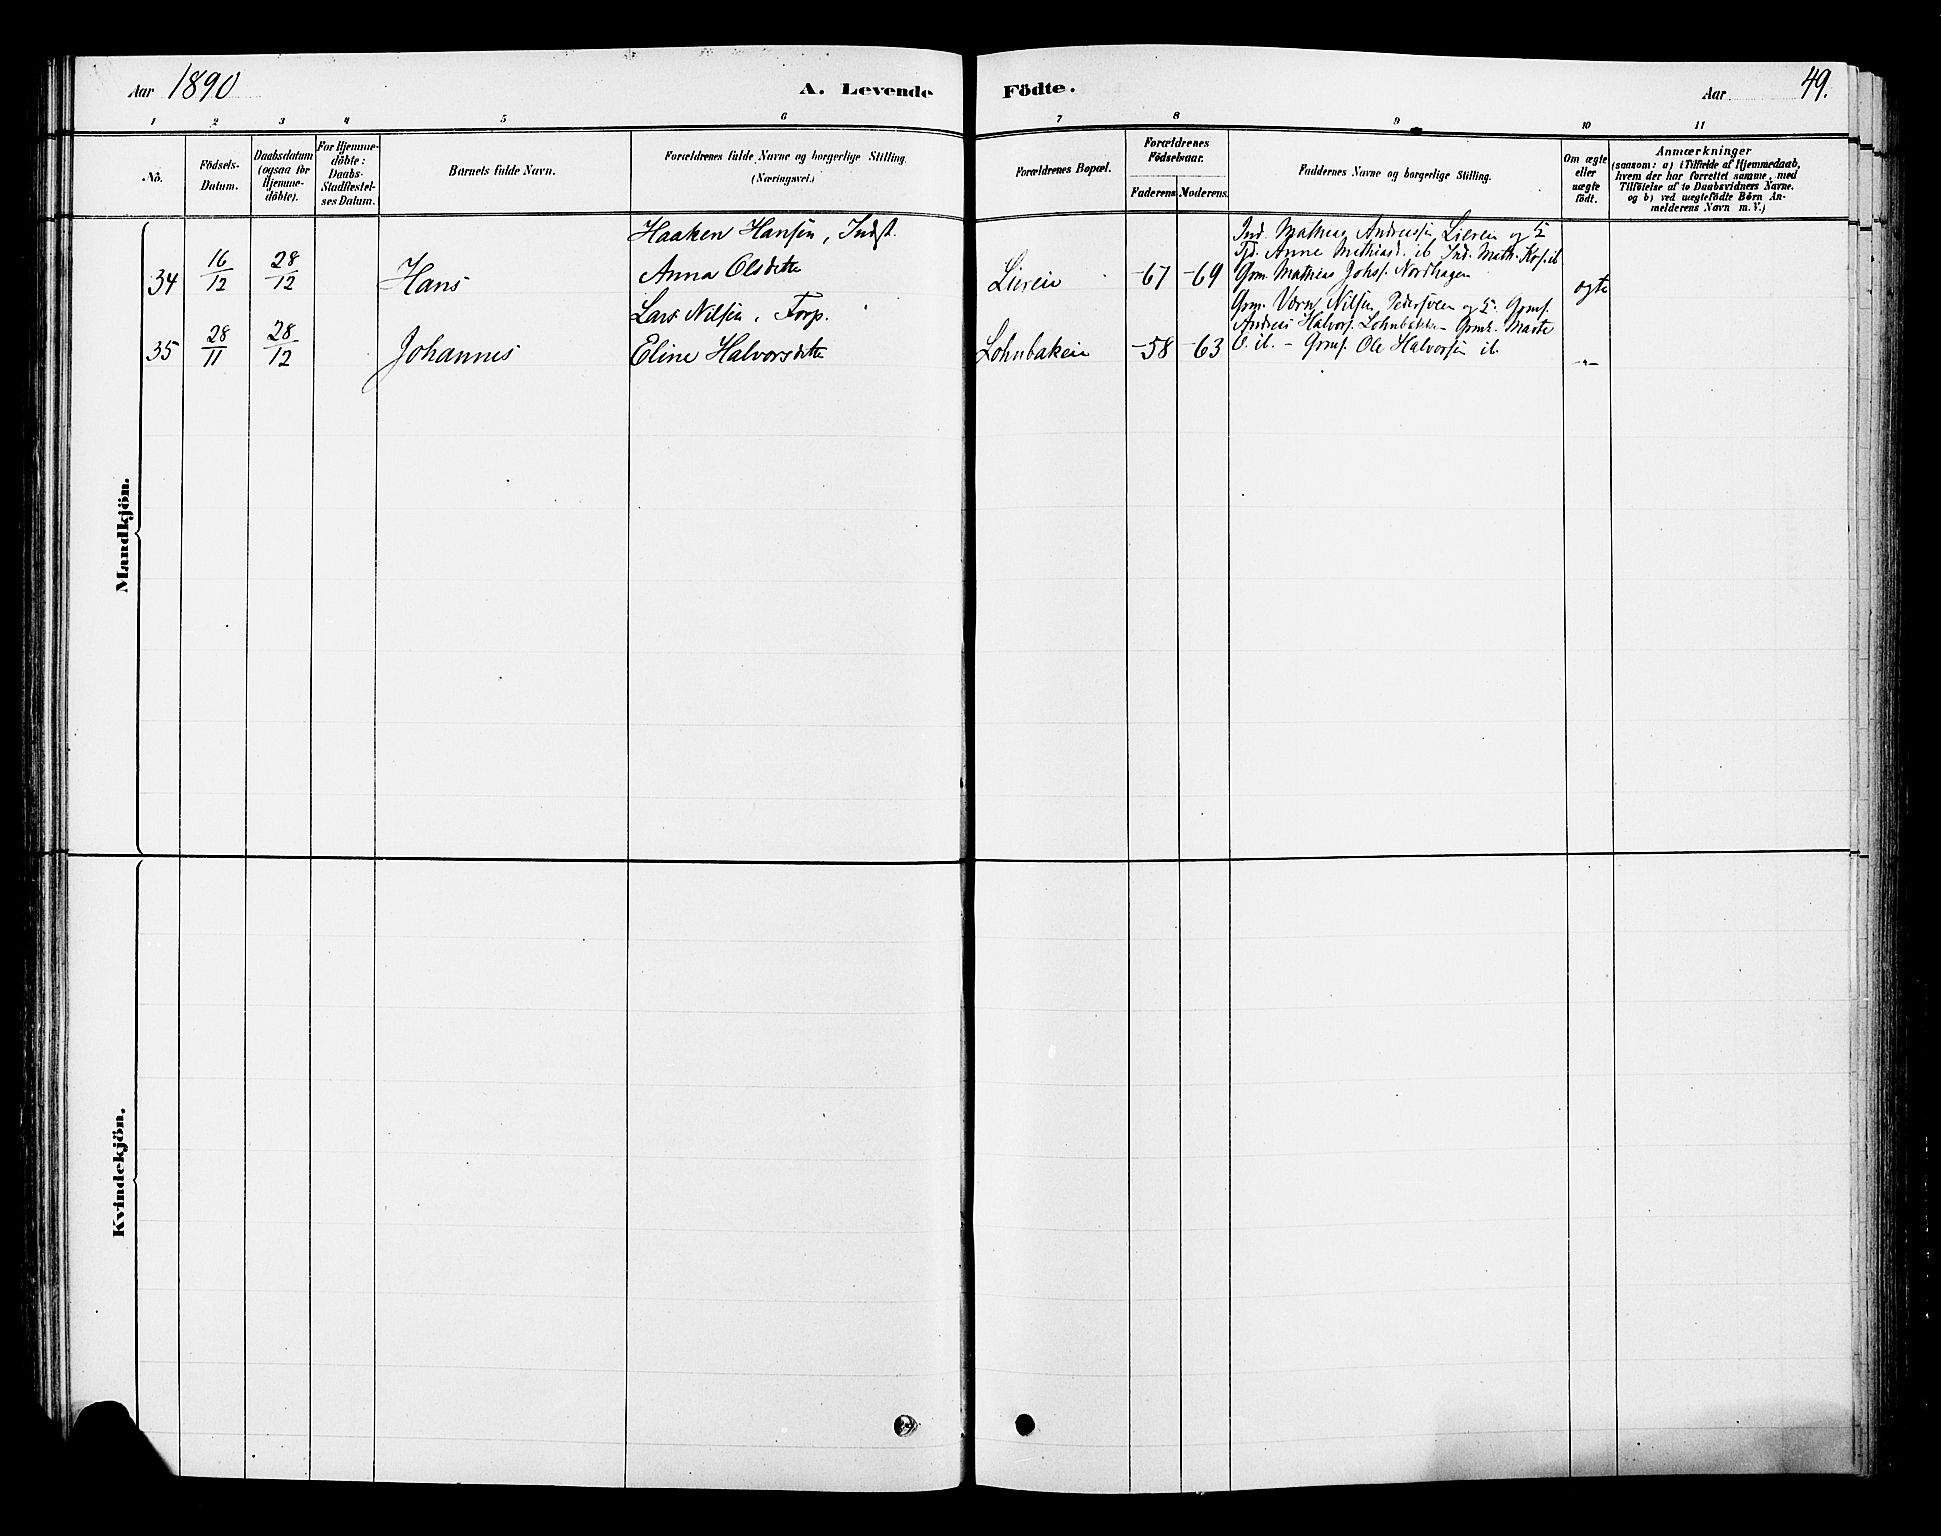 Aar 1890
A. Levende Födte.
Aar 49.
1 2 3 4 5 6 7 8 9 10 11
No.
Födsels-
Datum.
Daabsdatum
(ogsaa for
Hjemme-
döbte).
For Hjemme-
döbte:
Daabs-
Stadfæstel-
ses Datum.
Barnets fulde Navn.
Forældrenes fulde Navne og borgerlige Stilling.
(Næringsvei.)
Forældrenes Bopæl.
Forældrenes
Födselsaar.
Faderens Moderens.
Faddernes Navne og borgerlige Stilling.
Om ægte
eller
uægte
födt.
Anmærkninger
(saasom: a) i Tilfælde af Hjemmedaab,
hvem der har forrettet samme, med
Tilföielse af to Daabsvidners Navne.
og b) ved uægtefödte Börn An-
melderens Navn m. V.)
Mandkjön.
34
16/12
28/12
Hans
Haaken Hansen, Indst.
Anna Olsdtte
Lieren
-67 -69
Ind. Mathias Andreassen Lieren og
Anne Mathiasd. ib Ind. Math. ib
Grm. Mathias Johs. Nordhagen
ægte
35
28/11
28/12
Johannes
Lars Nilsen, Torp.
Eline Halvorsdtte
Lohnbaken
-58 -63
Grm. Nilsen Pedersveen og Grmf.
Andreas Halvors. Lohnbakken - Marte
O. ib. - Grmf. Ole Halvorsen ib.
-"-
Kvindekjön.